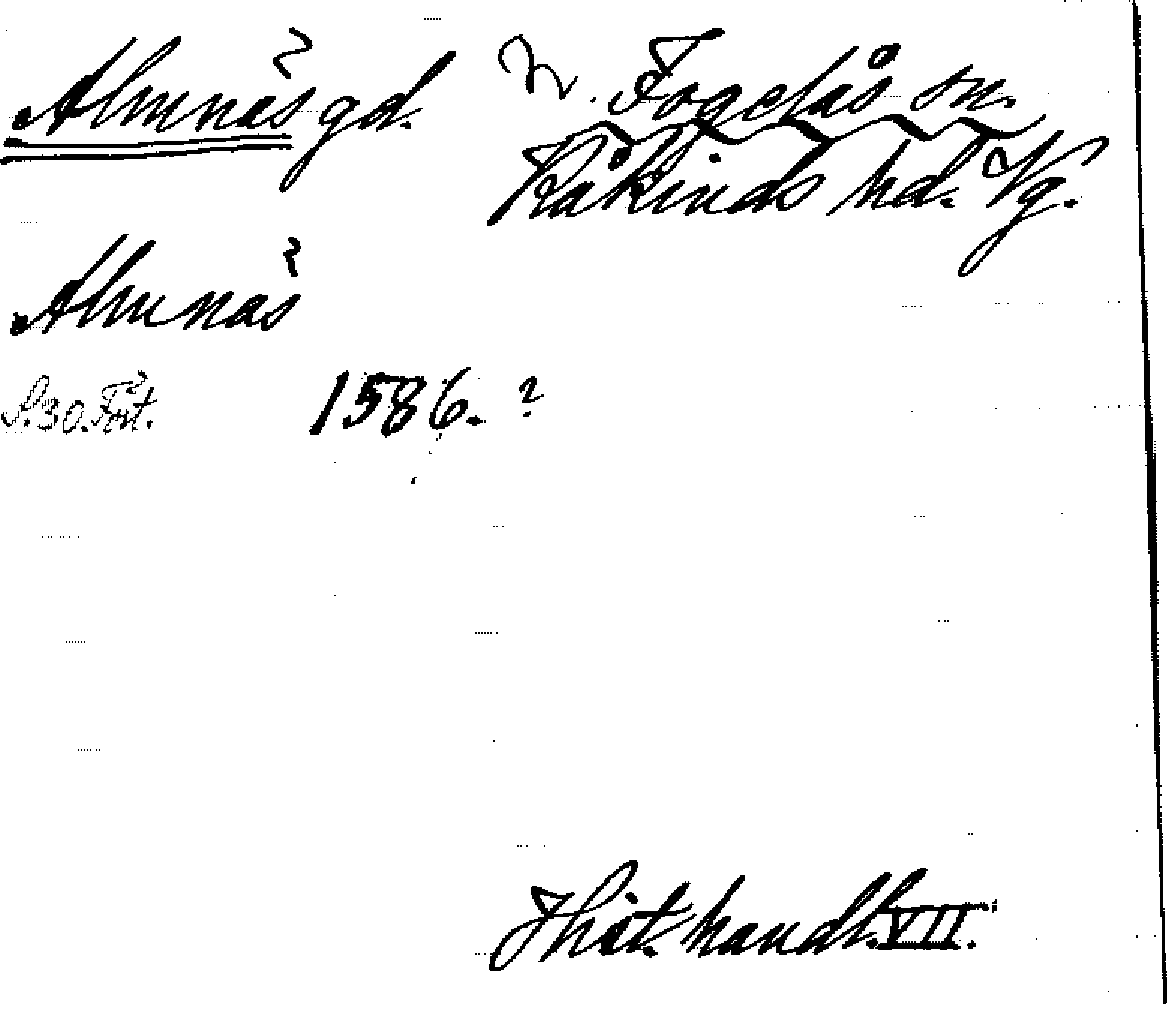 Almnäs gd. N. Fogelås sn.
Kåkinds hd. Vg.
Almnäs
S. 30. Fört. 1586. ?
Hist. handl. VII.